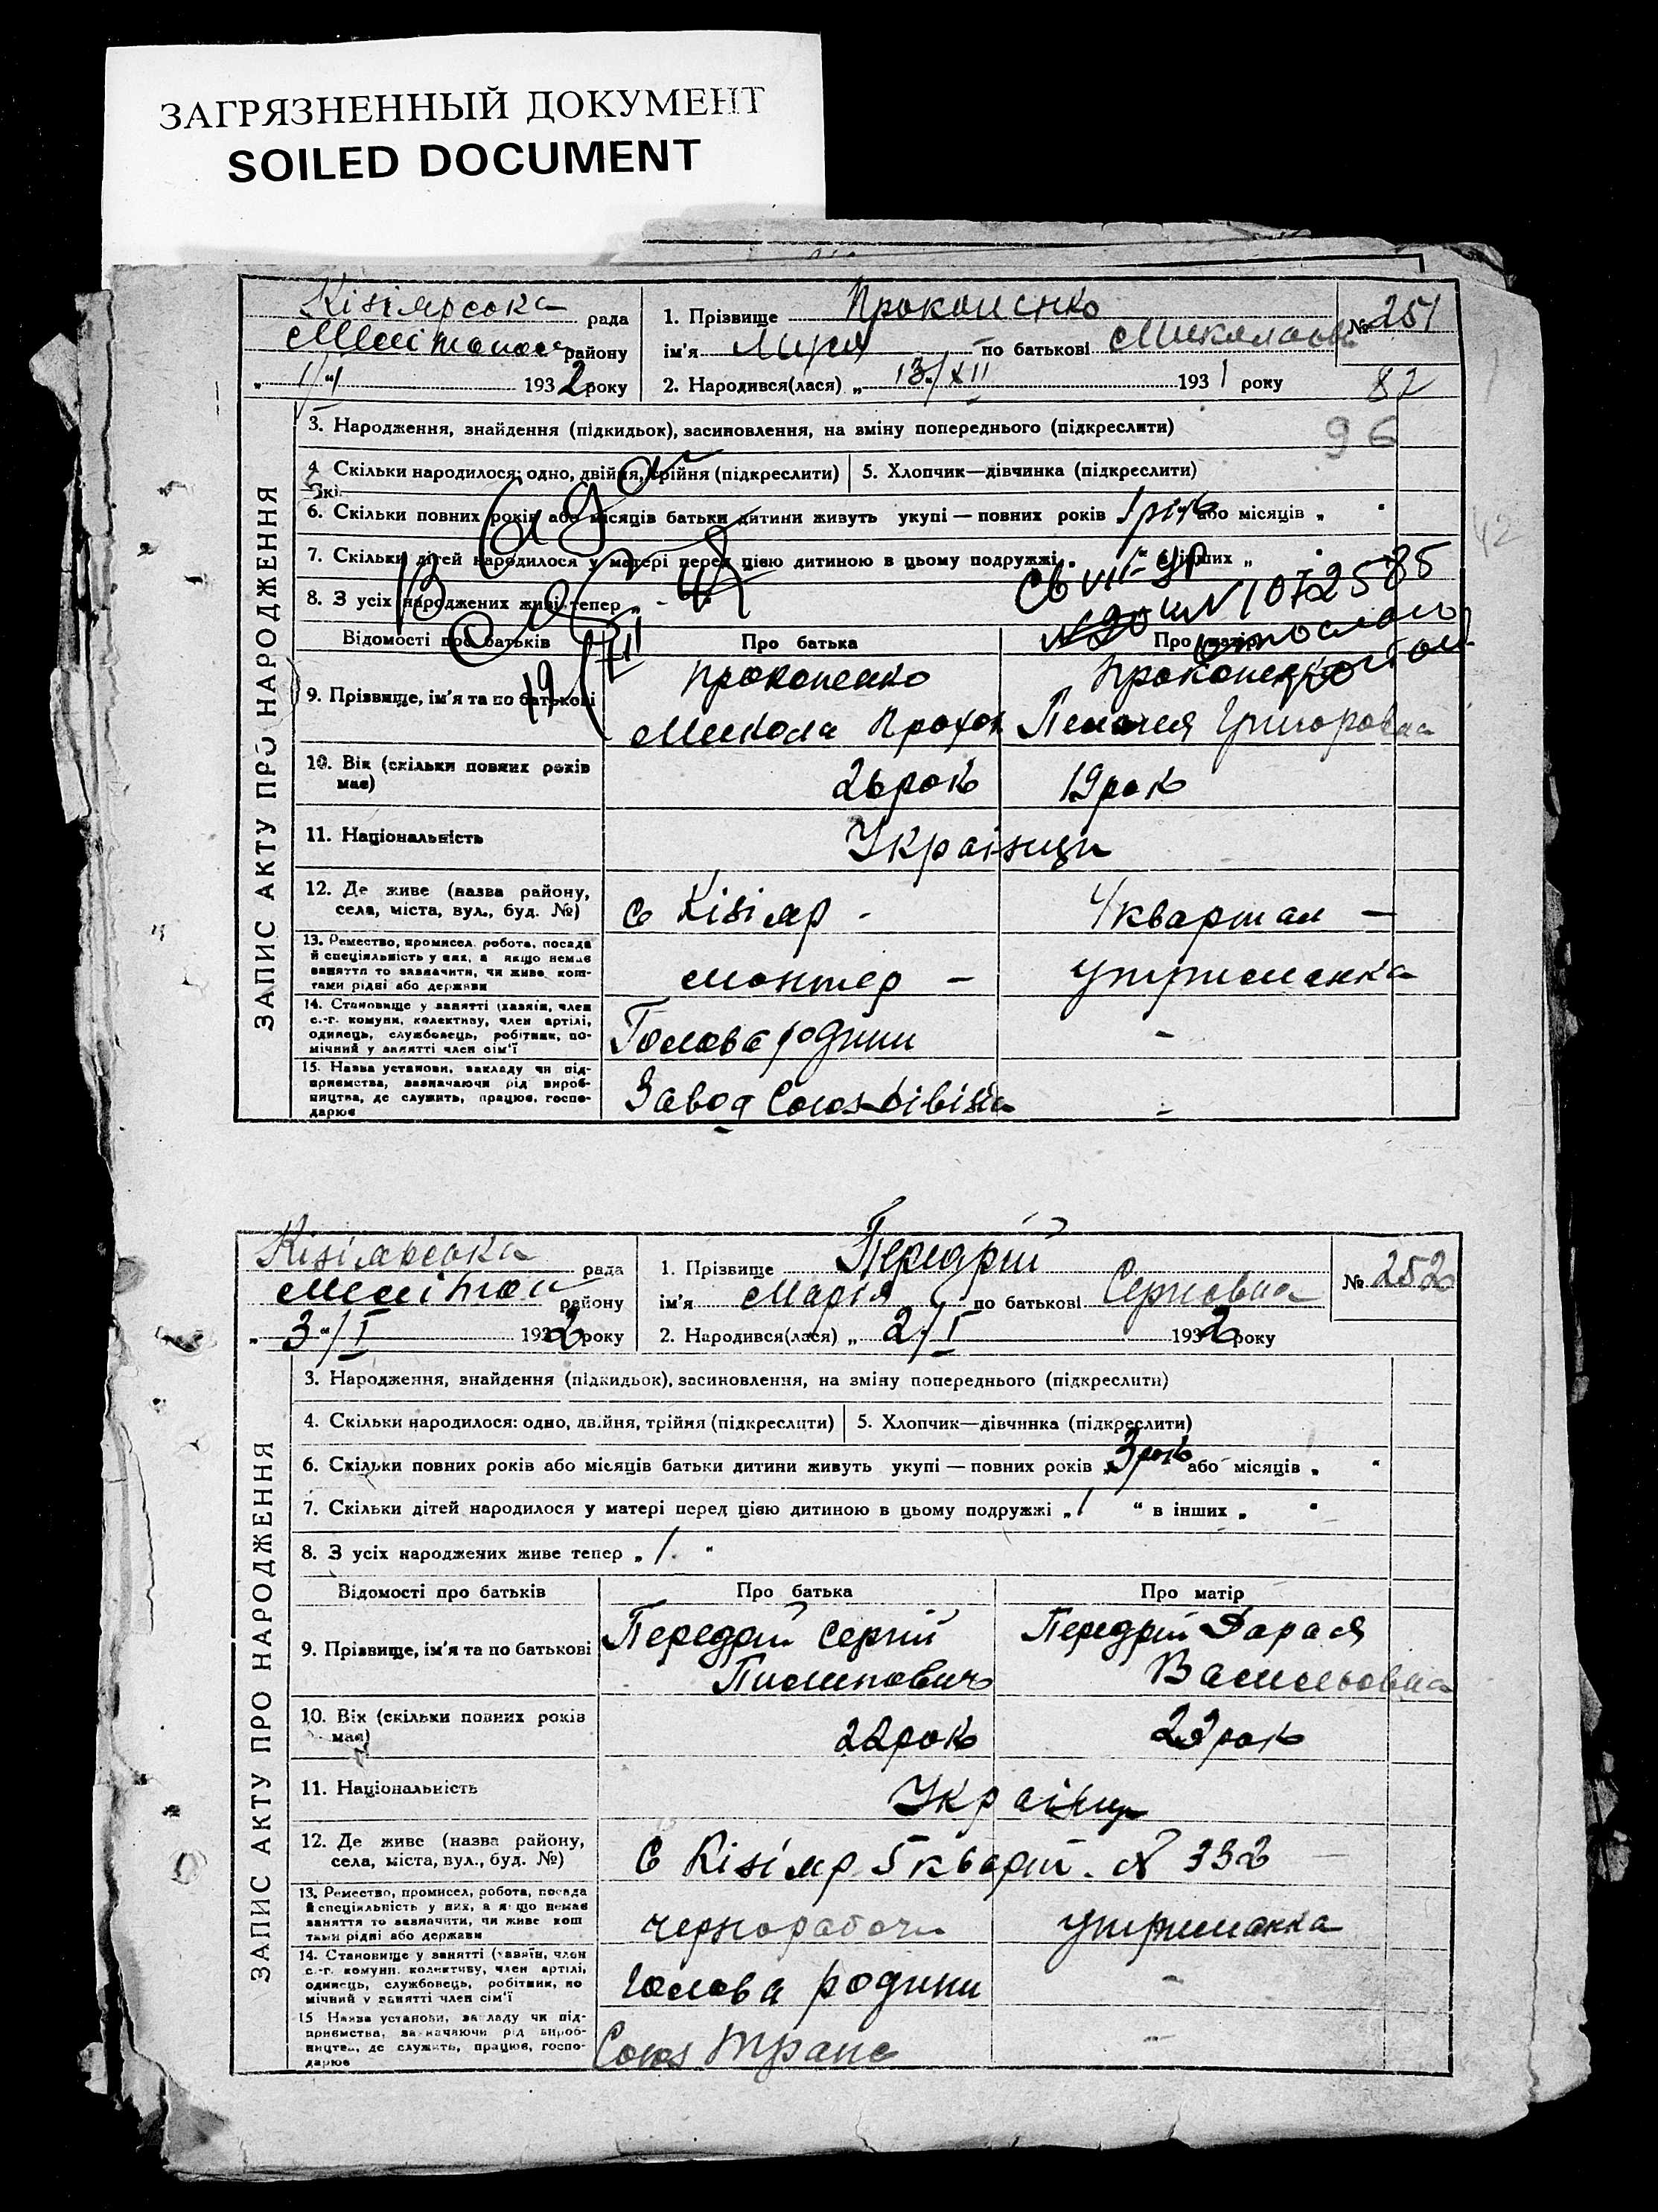 ЗАГРЯЗНЕННЫЙ ДОКУМЕНТ
SOILED DOCUMENT
Кізіярська рада
району
193 2 року
1. Прізвище Прокопенко
ім'я по батькові
2. Народився(лася) „ 13/XII 193 1 року
№ 251
82
96
ЗАПИС АКТУ ПРО НАРОДЖЕННЯ
3. Народження, знайдення (підкидьок), засиновлення, на зміну попереднього (підкреслити)
4. Скільки народилося: одно, двійня, трійня (підкреслити) 5. Хлопчик—дівчинка (підкреслити)
6. Скільки повних років або місяців батьки дитини живуть укупі — повних років 1 рік або місяців „ "
7. Скільки дітей народилося у матері перед цією дитиною в цьому подружжі „ " в інших „ "
8. З усіх народжених живе тепер „ -
42
Відомості про батьків Про батька Про матір
9. Прізвище, ім'я та по батькові
Прокопенко Прокопенко
Микола Прохор Григоровна
10. Вік (скільки повних років має) 26 рок 19 рок
11. Національність Українци
12. Де живе (назва району,
села, міста, вул., буд. №) с Кізіяр - 4 квартал —
13. Ремество, промисел, робота, посада
й спеціяльність у них, а якщо немає
заняття то зазначити, чи живе кош-
тами рідні або держави
монтер — утриманка
14. Становище у занятті (хазяїн, член
с.-г. комуни, колективу, член артілі,
одинець, службовець, робітник, по-
мічний у занятті член сім'ї
Голова родини -
15. Назва установи, закладу чи під-
приємства, зазначаючи рід вироб-
ництва, де служить, працює, госпо-
дарює
Завод -
Кізіярська рада
Мелітоп району
„ 3 " / I 193 2 року
1. Прізвище Передрій
ім'я Марія по батькові Сергіовна
2. Народився(лася) „ 2/I 193 2 року
№ 252
ЗАПИС АКТУ ПРО НАРОДЖЕННЯ
3. Народження, знайдення (підкидьок), засиновлення, на зміну попереднього (підкреслити)
4. Скільки народилося: одно, двійня, трійня (підкреслити) 5. Хлопчик—дівчинка (підкреслити)
6. Скільки повних років або місяців батьки дитини живуть укупі — повних років „ 3 рок або місяців „ "
7. Скільки дітей народилося у матері перед цією дитиною в цьому подружжі „ 1 " в інших „ "
8. З усіх народжених живе тепер „ 1 "
Відомості про батьків Про батька Про матір
9. Прізвище, ім'я та по батькові
Передрій Сергій Передрій Дарася
Пилипович Васильовна
10. Вік (скільки повних років має) 22 рок рок
11. Національність Українци
12. Де живе (назва району,
села, міста, вул., буд. №) с Кізіяр 5 кварт. № 332
13. Ремество, промисел, робота, посада
й спеціяльність у них, а якщо немає
заняття то зазначити, чи живе кош
тами рідні або держави
чернорабочи утриманка
14. Становище у занятті (хазяїн, член
с.-г. комуни, колективу, член артілі,
одинець, службовець, робітник, по
мічний у занятті член сім'ї
голова родини -
15 Назва установи, закладу чи під-
приємства, зазначаючи рід вироб-
ництва, де служить, працює, госпо-
дарює
Союз Транс -